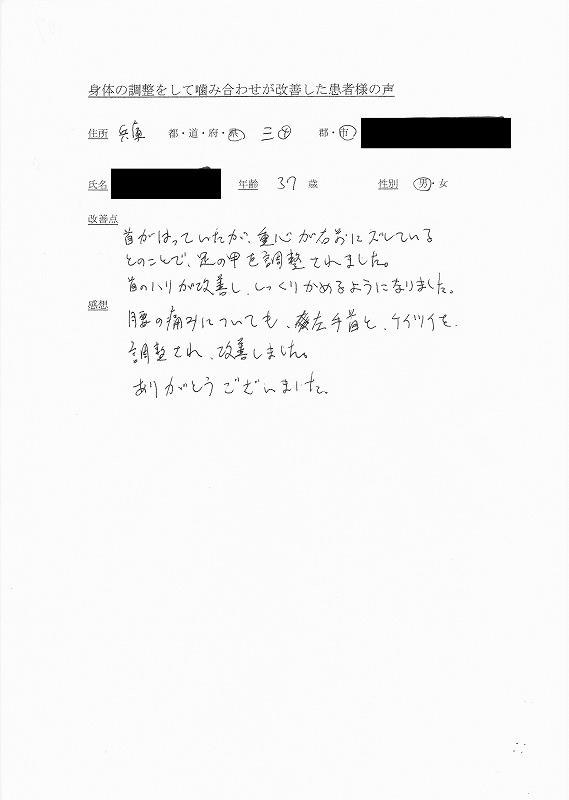 身体の調整をして噛み合わせが改善した患者様の声
住所 兵庫 都・道・府・県 三田 郡・市
氏名 年齢 37 歳 性別 男・女
改善点
首がはっていたが、重心が右前にズレている
とのことで、足の甲を調整されました。
首のハリが改善し、しっくりかめるようになりました。
感想
腰の痛みについても、左手首と、ケイツイを
調整され、改善しました。
ありがとうございました。